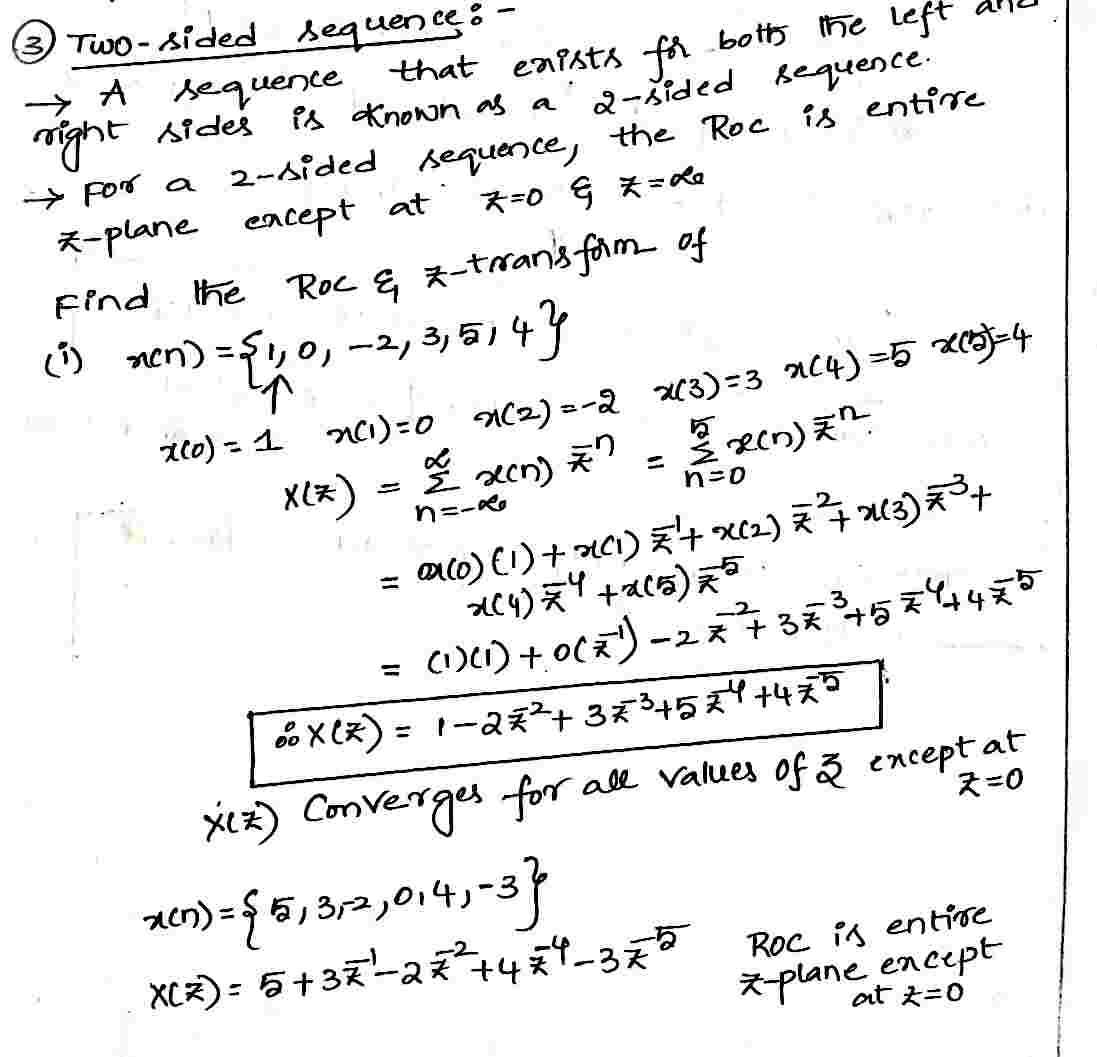 ③ Two-sided sequence:-
→ A sequence that exists for both the left and
right sides is known as a 2-sided sequence.
→ For a 2-sided sequence, the ROC is entire
z-plane except at z=0 & z=∞
Find the ROC & z-transform of
(i) x(n) = {1, 0, -2, 3, 5, 4}
↑
x(0) = 1 x(1)=0 x(2)=-2 x(3)=3 x(4)=5 x(5)=4
X(z) = ∑_{n=-∞}^{∞} x(n) z^{-n} = ∑_{n=0}^{5} x(n) z^{-n}.
= x(0)(1) + x(1) z^{-1} + x(2) z^{-2} + x(3) z^{-3} +
x(4) z^{-4} + x(5) z^{-5}
= (1)(1) + 0(z^{-1}) - 2z^{-2} + 3z^{-3} + 5z^{-4} + 4z^{-5}
∴ X(z) = 1 - 2z^{-2} + 3z^{-3} + 5z^{-4} + 4z^{-5}
X(z) Converges for all values of z except at
z=0
x(n) = {5, 3, -2, 0, 4, -3}
X(z) = 5 + 3z^{-1} - 2z^{-2} + 4z^{-4} - 3z^{-5}
ROC is entire
z-plane except
at z=0